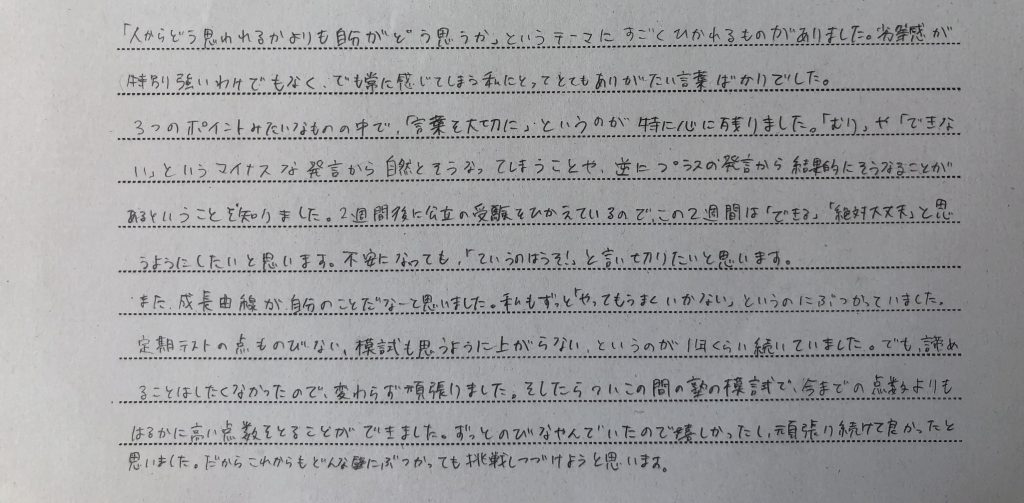 「人からどう思われるかよりも自分がどう思うか」というテーマにすごくひかれるものがありました。劣等感が
特別強いわけでもなく、でも常に感じてしまう私にとってとてもありがたい言葉ばかりでした。
3つのポイントみたいなものの中で、「言葉を大切に」というのが特に心に残りました。「むり」や「できな
い」というマイナスな発言から自然とそうなってしまうことや、逆にプラスの発言から結果的にそうなることが
あるということを知りました。2週間後に公立の受験をひかえているので、この2週間は「できる」「絶対大丈夫」と思
うようにしたいと思います。不安になっても、「ていうのはうそ!」と言い切りたいと思います。
また、成長曲線が自分のことだなーと思いました。私もずっと「やってもうまくいかない」というのにぶつかっていました。
定期テストの点ものびない、模試も思うように上がらない、というのが1年くらい続いていました。でも、諦め
ることはしたくなかったので、変わらず頑張りました。そしたらついこの間の塾の模試で、今までの点数よりも
はるかに高い点数をとることができました。ずっとのびなやんでいたので嬉しかったし、頑張り続けて良かったと
思いました。だからこれからもどんな壁にぶつかっても挑戦しつづけようと思います。